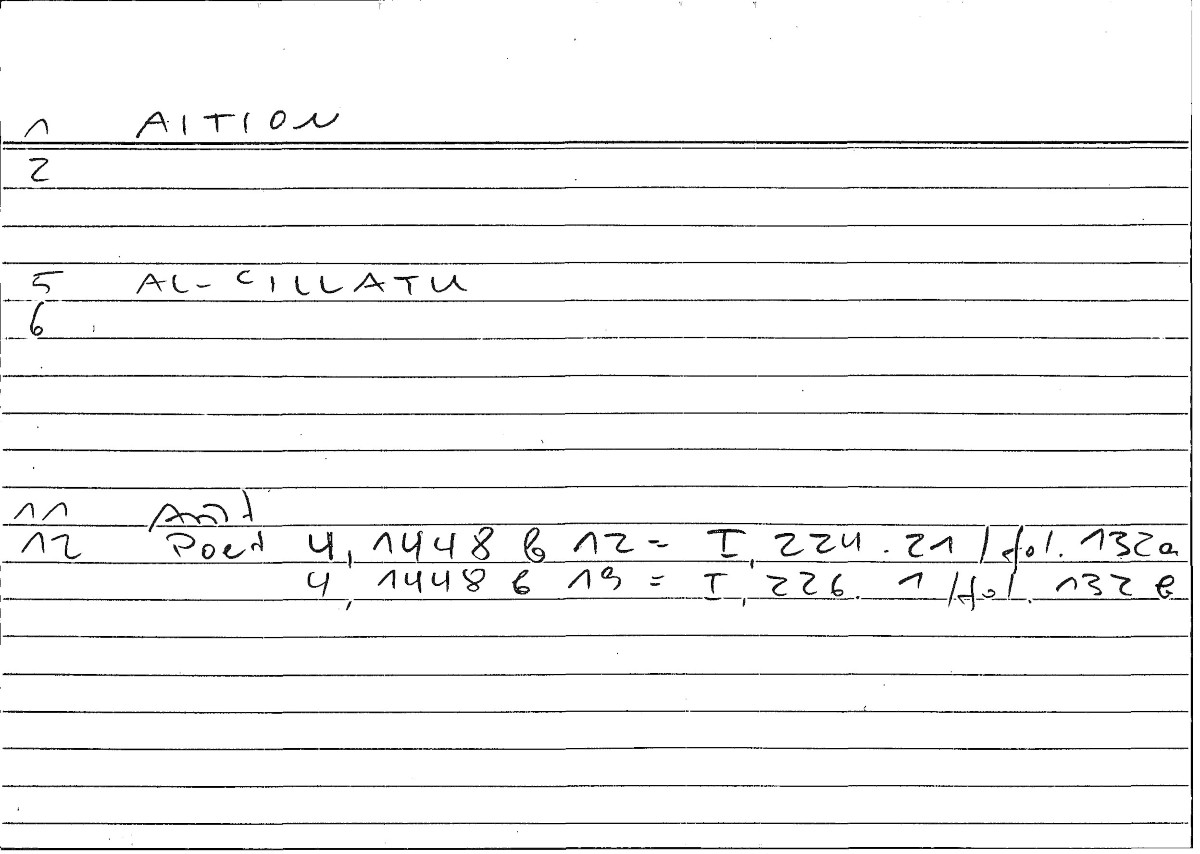 1 AITION
2
5 AL-ʿILLATU
6
11 Arist
12 Poet 4, 1448 b 12 = I, 224.21 / fol. 132a
4, 1448 b 19 = I, 226. 1 / fol. 132 b